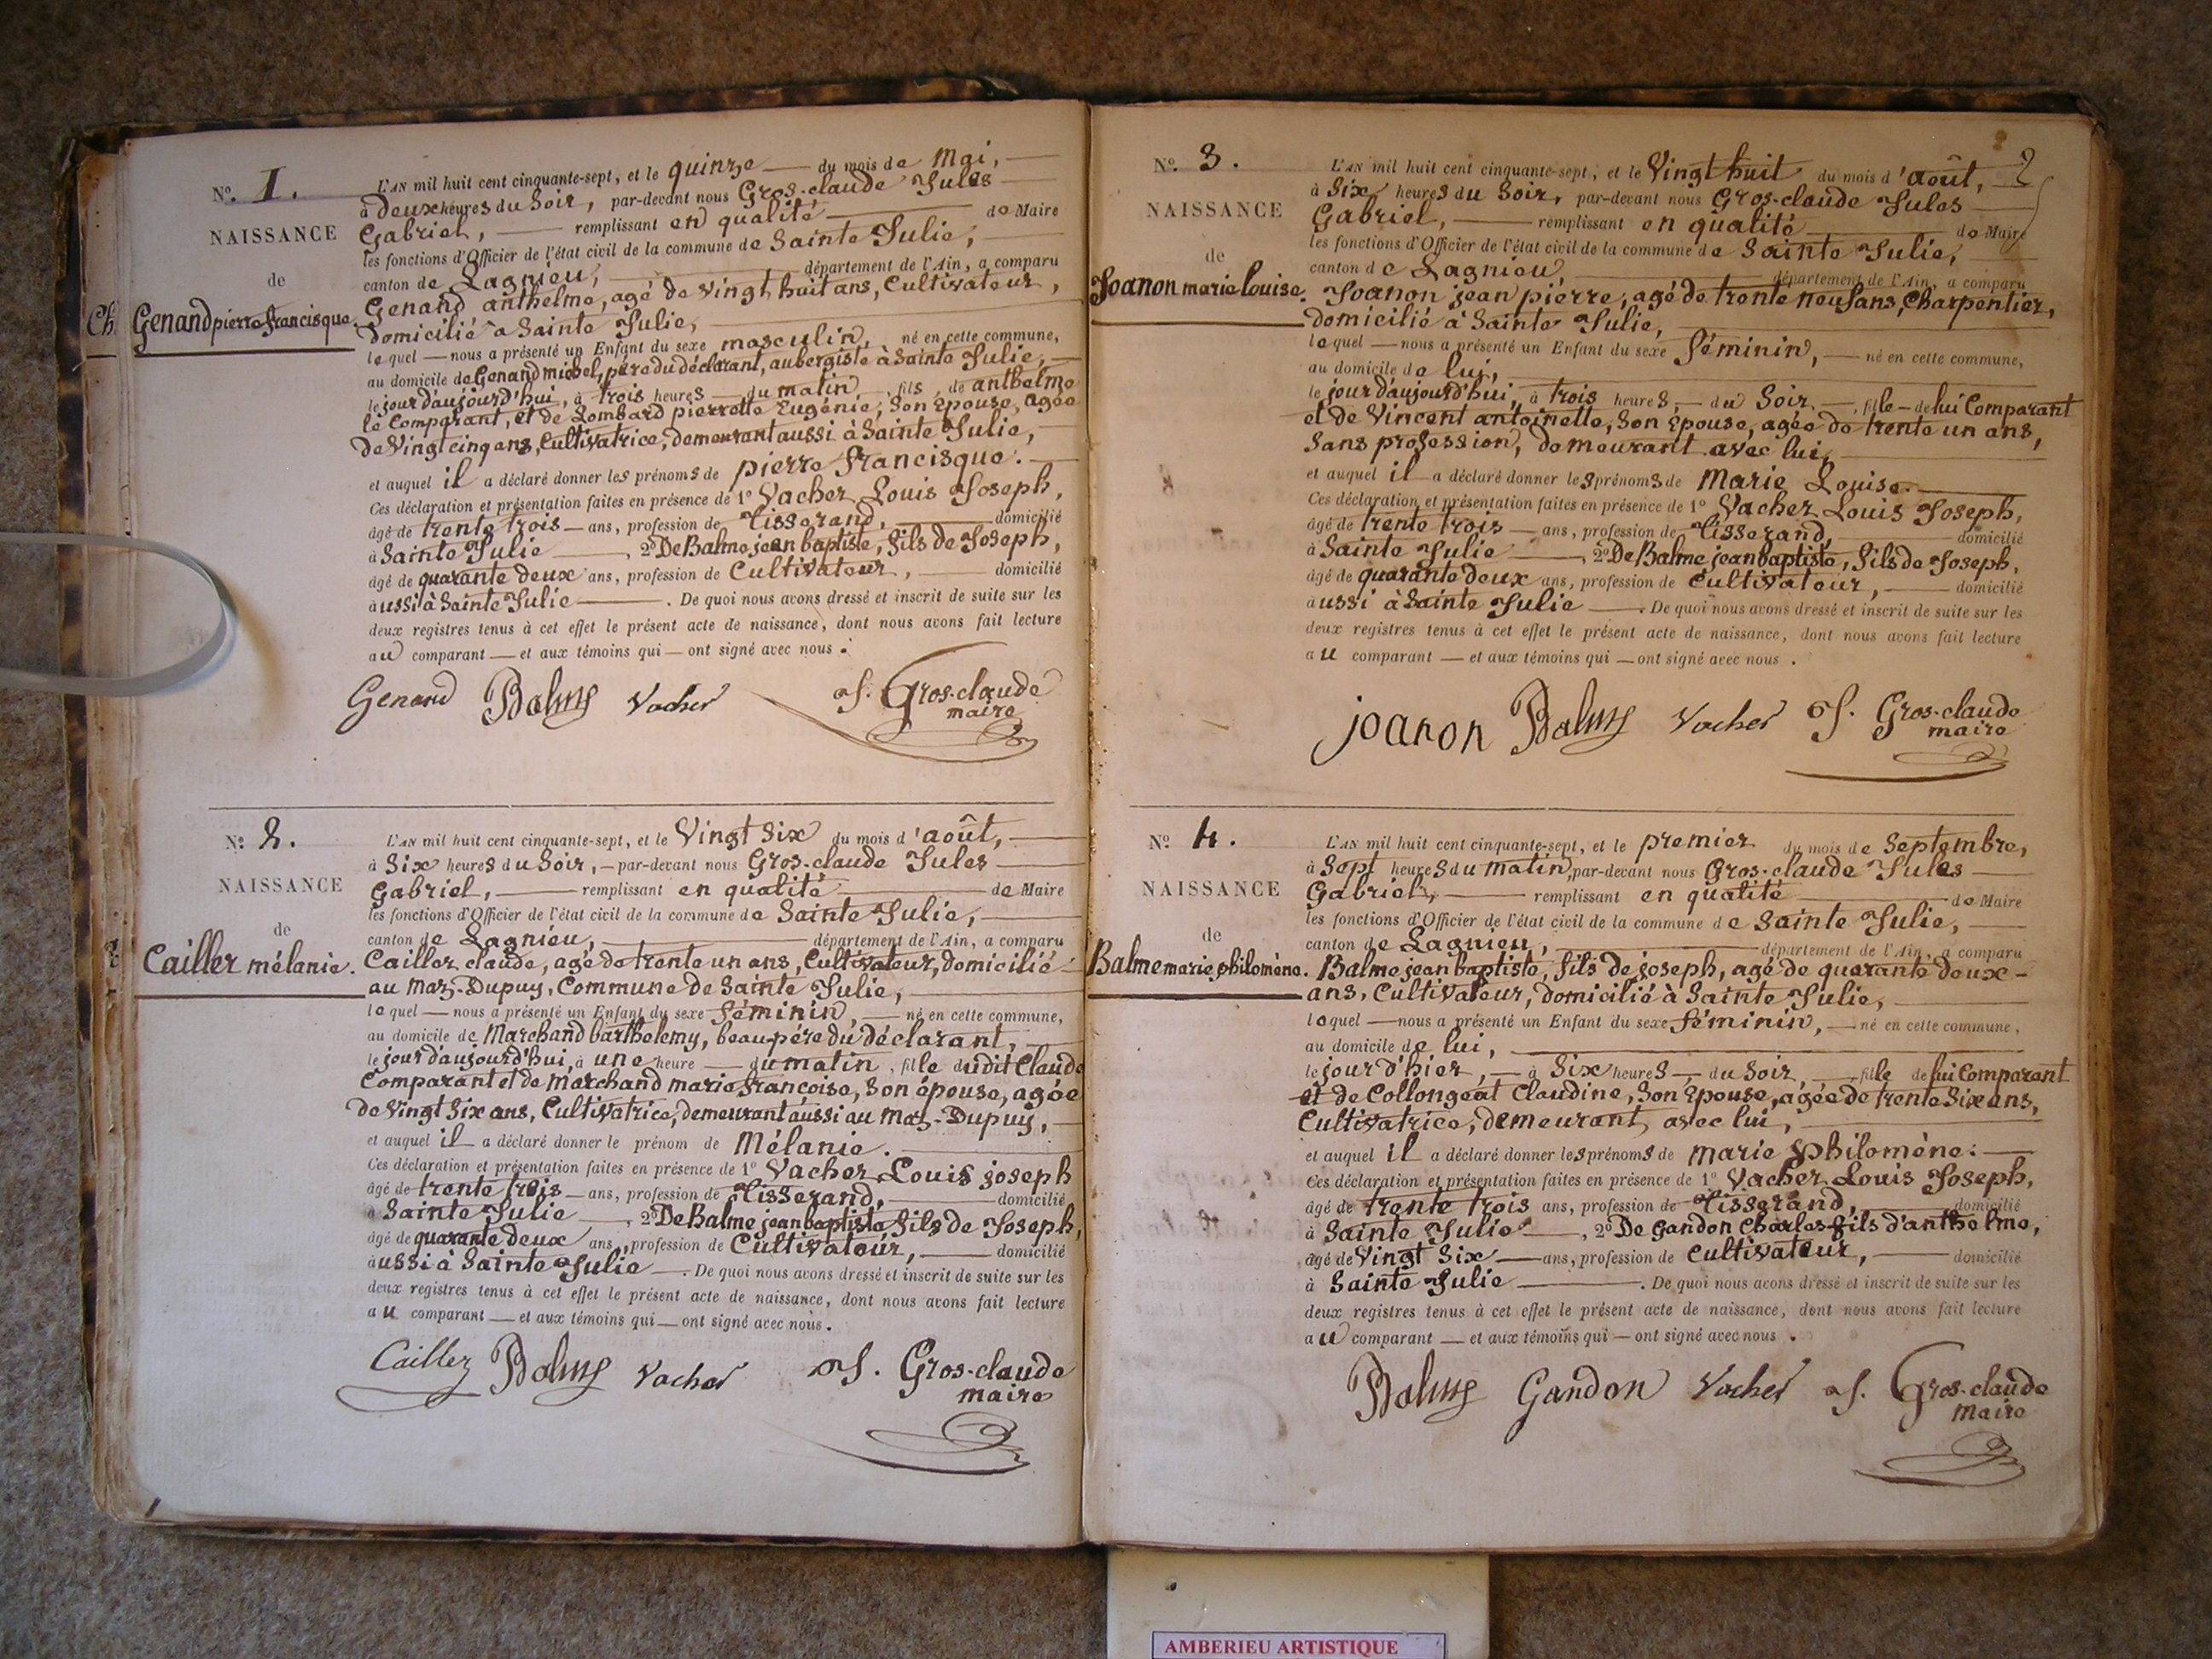 N.º 1.
NAISSANCE
de
Ch.
Genand pierre francisque.
L'AN mil huit cent cinquante-sept, et le quinze du mois de Mai,
à deux heures du Soir, par-devant nous Gros-claude Jules
Gabriel, remplissant en qualité de Maire
les fonctions d'Officier de l'état civil de la commune de Sainte Julie,
canton de Lagnieu, département de l'Ain, a comparu
Genand anthelme, agé de vingt huit ans, Cultivateur,
Domicilié a Sainte Julie,
lequel nous a présenté un Enfant du sexe masculin, né en cette commune,
au domicile de Genand michel, père du déclarant, aubergiste à Sainte Julie,
le jour d'aujourd'hui, à trois heures du matin, fils de anthelme
le Comparant, et de Lombard pierrette Eugénie, Son Epouse, agée
de Vingt cinq ans, Cultivatrice, demeurant aussi à Sainte Julie,
et auquel il a déclaré donner les prénoms de pierre francisque.
Ces déclaration et présentation faites en présence de 1º Vacher Louis Joseph,
âgé de trente trois ans, profession de Tisserand, domicilié
à Sainte Julie, 2º De Balme jean baptiste, fils de Joseph,
âgé de quarante deux ans, profession de Cultivateur, domicilié
aussi à Sainte Julie. De quoi nous avons dressé et inscrit de suite sur les
deux registres tenus à cet effet le présent acte de naissance, dont nous avons fait lecture
au comparant et aux témoins qui ont signé avec nous.
Genand Balme Vacher J. Gros-claude
maire
N.º 2.
NAISSANCE
de
Cailler mélanie.
L'AN mil huit cent cinquante-sept, et le Vingt Six du mois d'août,
à Six heures du Soir, par-devant nous Gros-claude Jules
Gabriel, remplissant en qualité de Maire
les fonctions d'Officier de l'état civil de la commune de Sainte Julie,
canton de Lagnieu, département de l'Ain, a comparu
Cailler claude, agé de trente un ans, Cultivateur, domicilié
au Maz-Dupuy, Commune de Sainte Julie,
lequel nous a présenté un Enfant du sexe féminin, né en cette commune,
au domicile de Marchand barthelemy, beau-père du déclarant,
le jour d'aujourd'hui, à une heure du matin, fille dudit Claude
Comparant et de Marchand marie françoise, Son épouse, agée
de Vingt Six ans, Cultivatrice, demeurant aussi au Maz-Dupuy,
et auquel il a déclaré donner le prénom de Mélanie.
Ces déclaration et présentation faites en présence de 1º Vacher Louis joseph
âgé de trente trois ans, profession de Tisserand, domicilié
à Sainte Julie, 2º De Balme jean baptiste fils de Joseph,
âgé de quarante deux ans, profession de Cultivateur, domicilié
aussi à Sainte Julie. De quoi nous avons dressé et inscrit de suite sur les
deux registres tenus à cet effet le présent acte de naissance, dont nous avons fait lecture
au comparant et aux témoins qui ont signé avec nous.
Cailler Balme Vacher J. Gros-claude
maire
2
N.º 3.
NAISSANCE
de
Joanon marie louise.
L'AN mil huit cent cinquante-sept, et le Vingt huit du mois d'août,
à Six heures du Soir, par-devant nous Gros-claude Jules
Gabriel, remplissant en qualité de Maire
les fonctions d'Officier de l'état civil de la commune de Sainte Julie,
canton de Lagnieu, département de l'Ain, a comparu
Joanon jean pierre, agé de trente neuf ans, Charpentier,
domicilié à Sainte Julie,
lequel nous a présenté un Enfant du sexe féminin, né en cette commune,
au domicile de lui,
le jour d'aujourd'hui, à trois heures, du Soir, fille de lui Comparant
et de Vincent antoinette, Son Epouse, agée de trente un ans,
Sans profession, demeurant avec lui,
et auquel il a déclaré donner les prénoms de Marie Louise.
Ces déclaration et présentation faites en présence de 1º Vacher Louis Joseph,
âgé de trente trois ans, profession de Tisserand, domicilié
à Sainte Julie, 2º De Balme jean baptiste, fils de Joseph,
âgé de quarante deux ans, profession de Cultivateur, domicilié
aussi à Sainte Julie. De quoi nous avons dressé et inscrit de suite sur les
deux registres tenus à cet effet le présent acte de naissance, dont nous avons fait lecture
au comparant et aux témoins qui ont signé avec nous.
joanon Balme Vacher J. Gros-claude
maire
N.º 4.
NAISSANCE
de
Balme marie philomène.
L'AN mil huit cent cinquante-sept, et le premier du mois de Septembre,
à Sept heures du matin, par-devant nous Gros-claude Jules
Gabriel, remplissant en qualité de Maire
les fonctions d'Officier de l'état civil de la commune de Sainte Julie,
canton de Lagnieu, département de l'Ain, a comparu
Balme jean baptiste, fils de joseph, agé de quarante deux
ans, Cultivateur, domicilié à Sainte Julie,
lequel nous a présenté un Enfant du sexe féminin, né en cette commune,
au domicile de lui,
le jour d'hier, à Six heures, du Soir, fille de lui Comparant
et de Collongeat Claudine, Son Epouse, agée de trente Six ans,
Cultivatrice, demeurant avec lui,
et auquel il a déclaré donner les prénoms de Marie Philomène.
Ces déclaration et présentation faites en présence de 1º Vacher Louis Joseph,
âgé de trente trois ans, profession de Tisserand, domicilié
à Sainte Julie, 2º De Gandon Charles fils d'anthelme,
âgé de Vingt Six ans, profession de Cultivateur, domicilié
à Sainte Julie. De quoi nous avons dressé et inscrit de suite sur les
deux registres tenus à cet effet le présent acte de naissance, dont nous avons fait lecture
au comparant et aux témoins qui ont signé avec nous.
Balme Gandon Vacher J. Gros-claude
Maire
AMBERIEU ARTISTIQUE